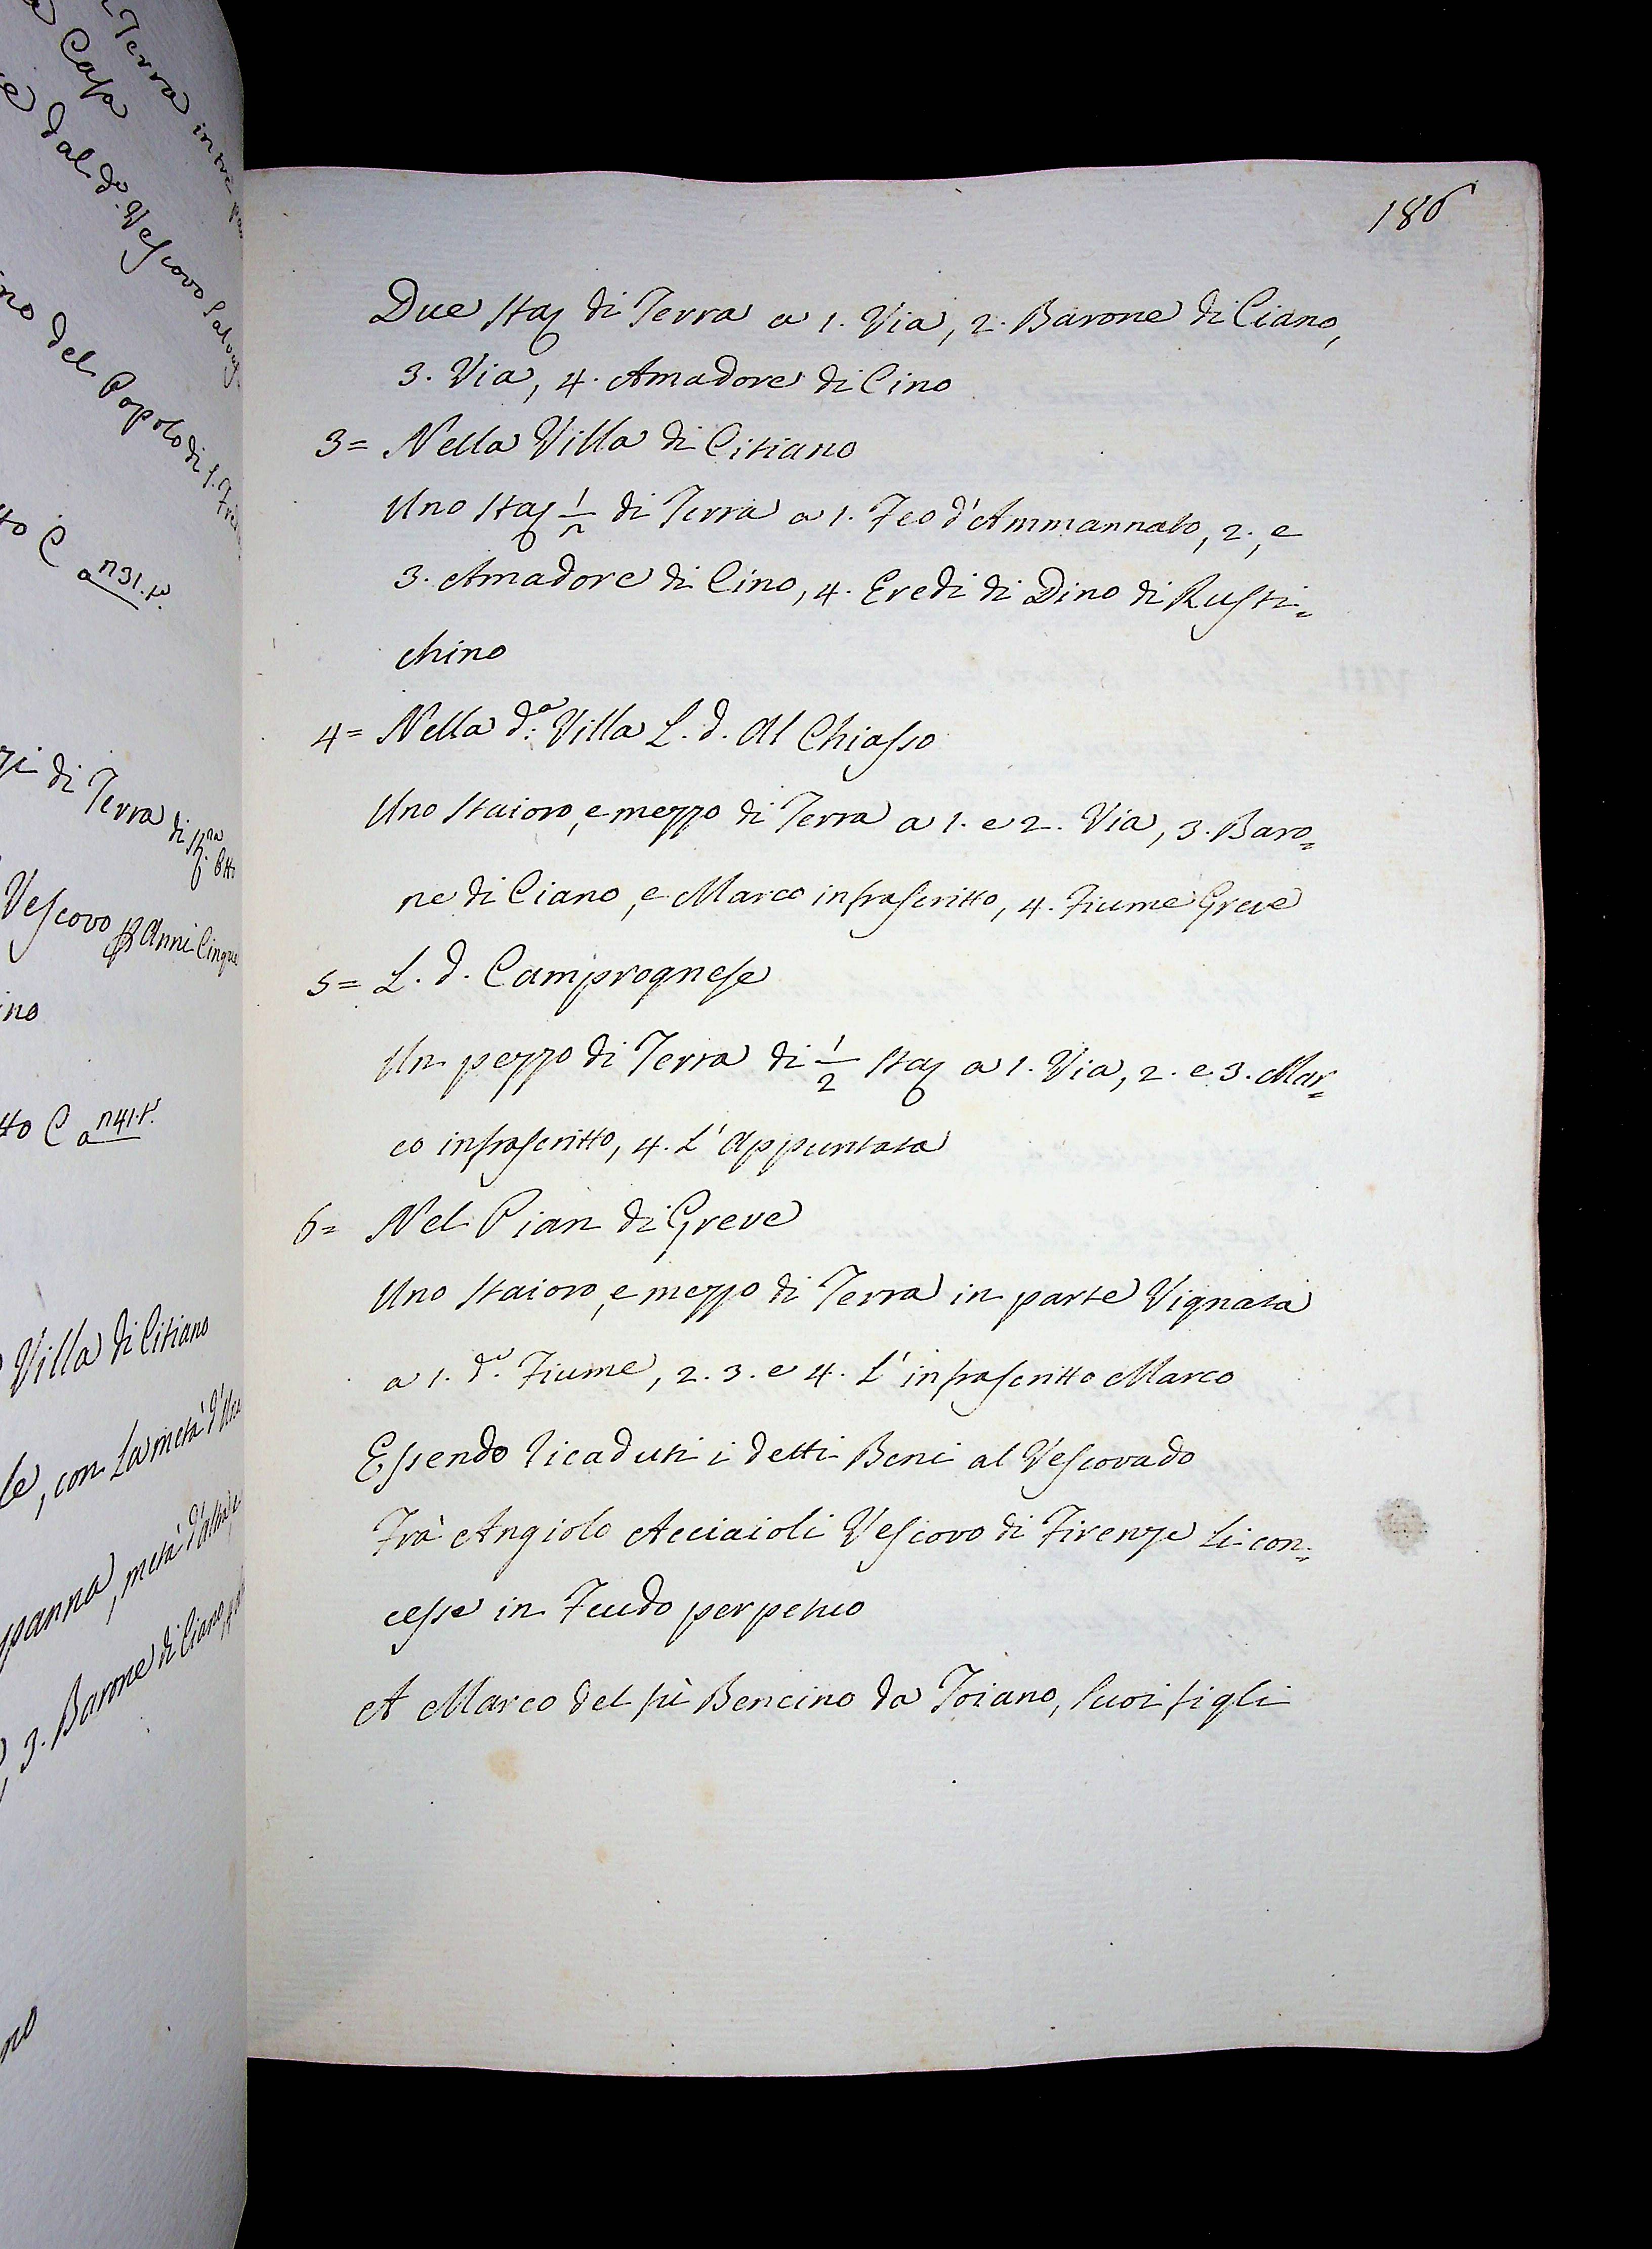 Terra in tre
Casa
dal d.º Vescovo Salvag
no del Popolo di S.
tto C a n 31. t.º
zi di Terra di
Vescovo p Anni Cinque
ino
tto C a n 41. t.º
Villa di Citiano
le, con La metà d'
panna, metà d'altra
3. Barone di Ciano
no
186
Due Staj di Terra a 1. Via, 2. Barone di Ciano,
3. Via, 4. Amadore di Cino
3= Nella Villa di Citiano
Uno Staj 1/2 di Terra a 1. Feo d'Ammannato, 2., e
3. Amadore di Cino, 4. Eredi di Dino di Rusti=
chino
4= Nella d.ª Villa L. d. Al Chiasso
Uno Staioro, e mezzo di Terra a 1. e 2. Via, 3. Baro=
ne di Ciano, e Marco infrascritto, 4. Fiume Greve
5= L. d. Camprognese
Un pezzo di Terra di 1/2 Staj a 1. Via, 2. e 3. Mar=
co infrascritto, 4. L'Appuntata
6= Nel Pian di Greve
Uno Staioro, e mezzo di Terra in parte Vignata
a 1. d.º Fiume, 2. 3. e 4. L'infrascritto Marco
Essendo ricaduti i detti Beni al Vescovado
Frà Angiolo Acciaioli Vescovo di Firenze Li con=
cesse in Feudo perpetuo
A Marco del fù Bencino da Toiano, Suoi figli